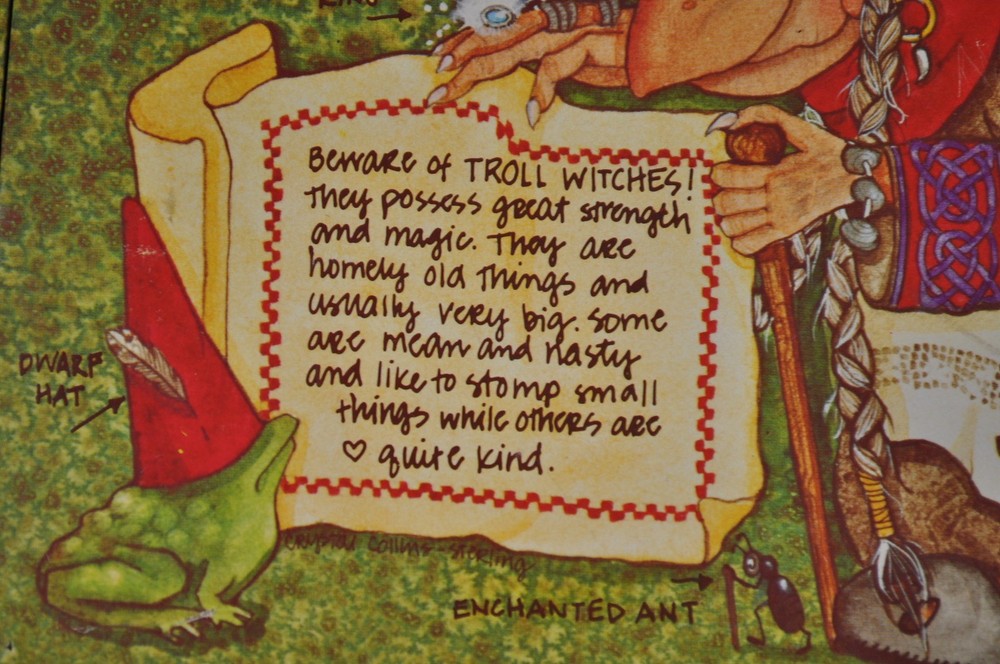 RING
Beware of TROLL WITCHES!
They possess great strength
and magic. They are
homely old things and
usually very big. Some
are mean and nasty
and like to stomp small
things while others are
♡ quite kind.
DWARF
HAT
Crystal Collins-Sterling
ENCHANTED ANT